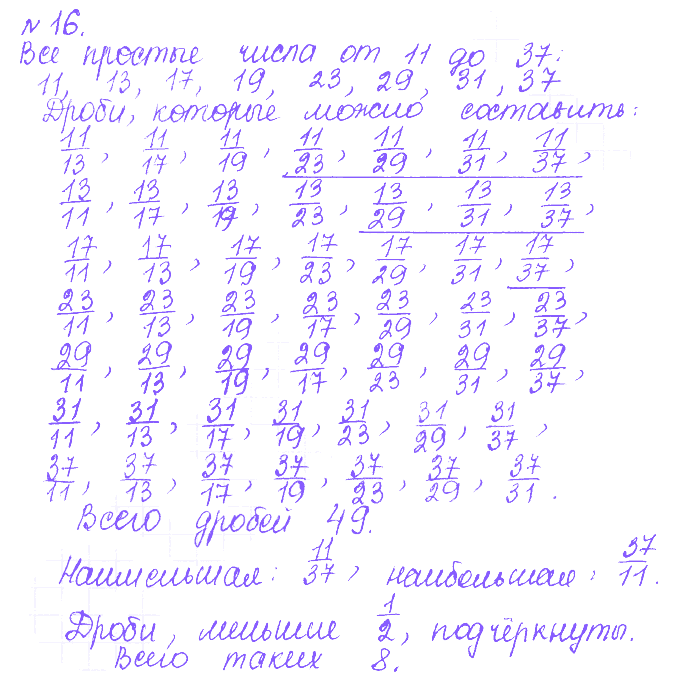 № 16.
Все простые числа от 11 до 37:
11, 13, 17, 19, 23, 29, 31, 37
Дроби, которые можно составить:
11/13, 11/17, 11/19, 11/23, 11/29, 11/31, 11/37,
13/11, 13/17, 13/19, 13/23, 13/29, 13/31, 13/37,
17/11, 17/13, 17/19, 17/23, 17/29, 17/31, 17/37,
23/11, 23/13, 23/19, 23/17, 23/29, 23/31, 23/37,
29/11, 29/13, 29/19, 29/17, 29/23, 29/31, 29/37,
31/11, 31/13, 31/17, 31/19, 31/23, 31/29, 31/37,
37/11, 37/13, 37/17, 37/19, 37/23, 37/29, 37/31.
Всего дробей 49.
Наименьшая: 11/37, наибольшая: 37/11.
Дроби, меньшие 1/2, подчёркнуты.
Всего таких 8.